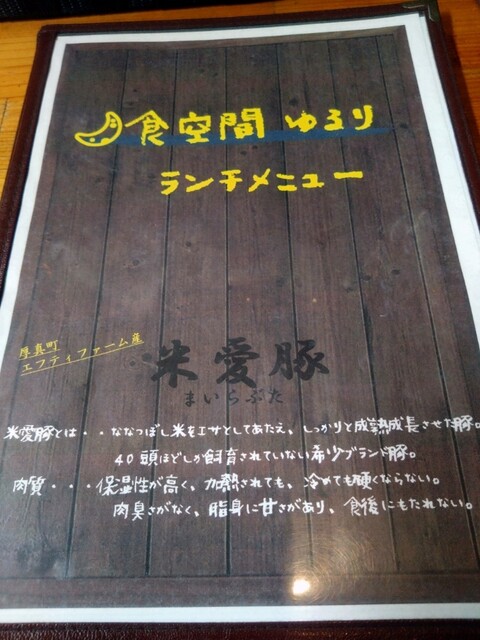 食空間 ゆるり
ランチメニュー
厚真町
エフティファーム産
米愛豚
まいらぶた
米愛豚とは・・ななつぼし米をエサとしてあたえ、しっかりと成熟成長させた豚。
40頭ほどしか飼育されていない希少ブランド豚。
肉質・・・保湿性が高く、加熱されても、冷めても硬くならない。
肉臭さがなく、脂身に甘さがあり、食後にもたれない。